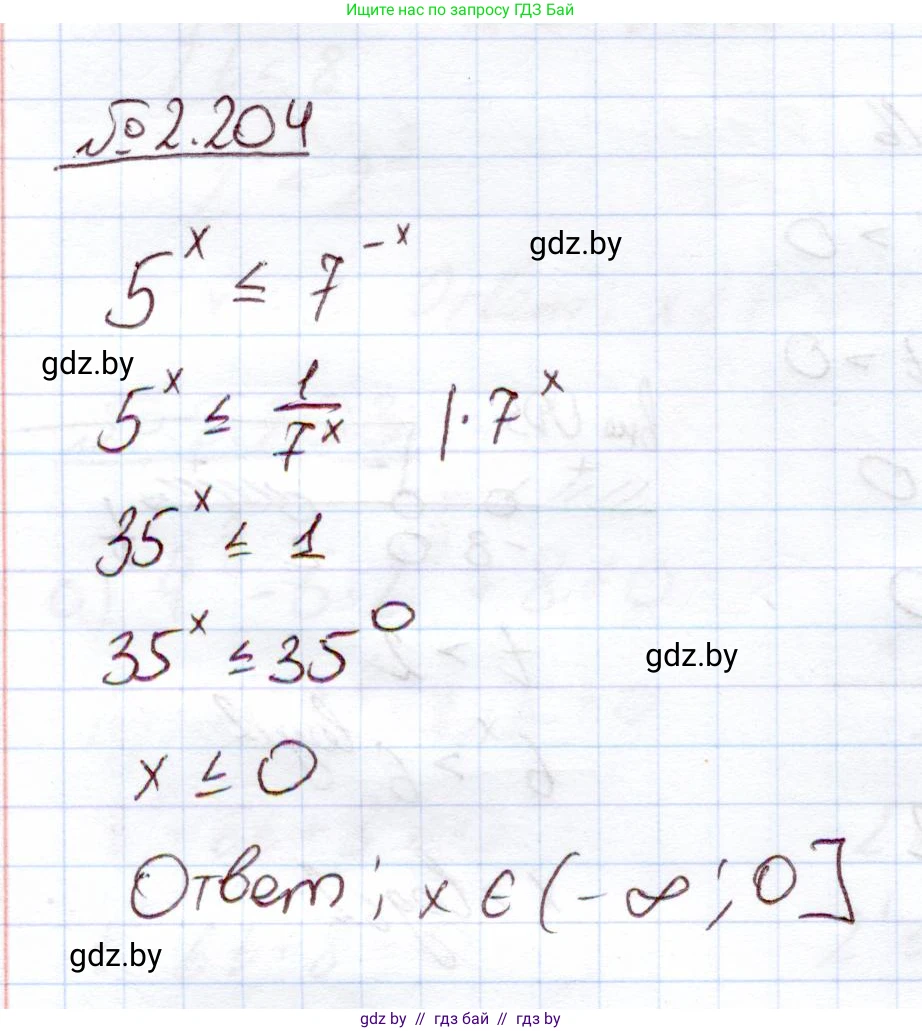 Ищите нас по запросу ГДЗ Бай
№2.204
5^x ≤ 7^{-x}
gdz.by
gdz.by
5^x ≤ 1/7^x |·7^x
35^x ≤ 1
35^x ≤ 35^0
gdz.by
x ≤ 0
Ответ: x ∈ (-∞; 0]
gdz.by
gdz by // гдз бай // гдз by